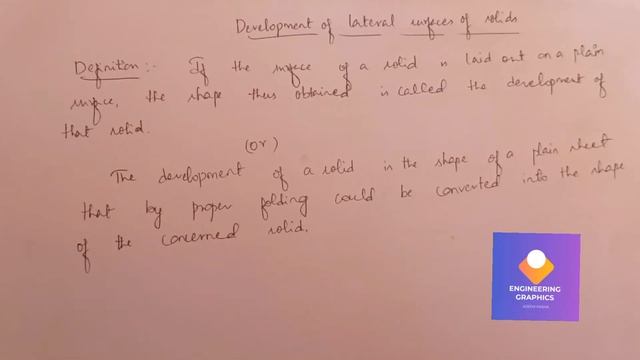 Development of lateral surfaces of solids
Definition:- If the surface of a solid is laid out on a plain
surface, the shape thus obtained is called the development of
that solid.
(or)
The development of a solid is the shape of a plain sheet
that by proper folding could be converted into the shape
of the concerned solid.
ENGINEERING
GRAPHICS